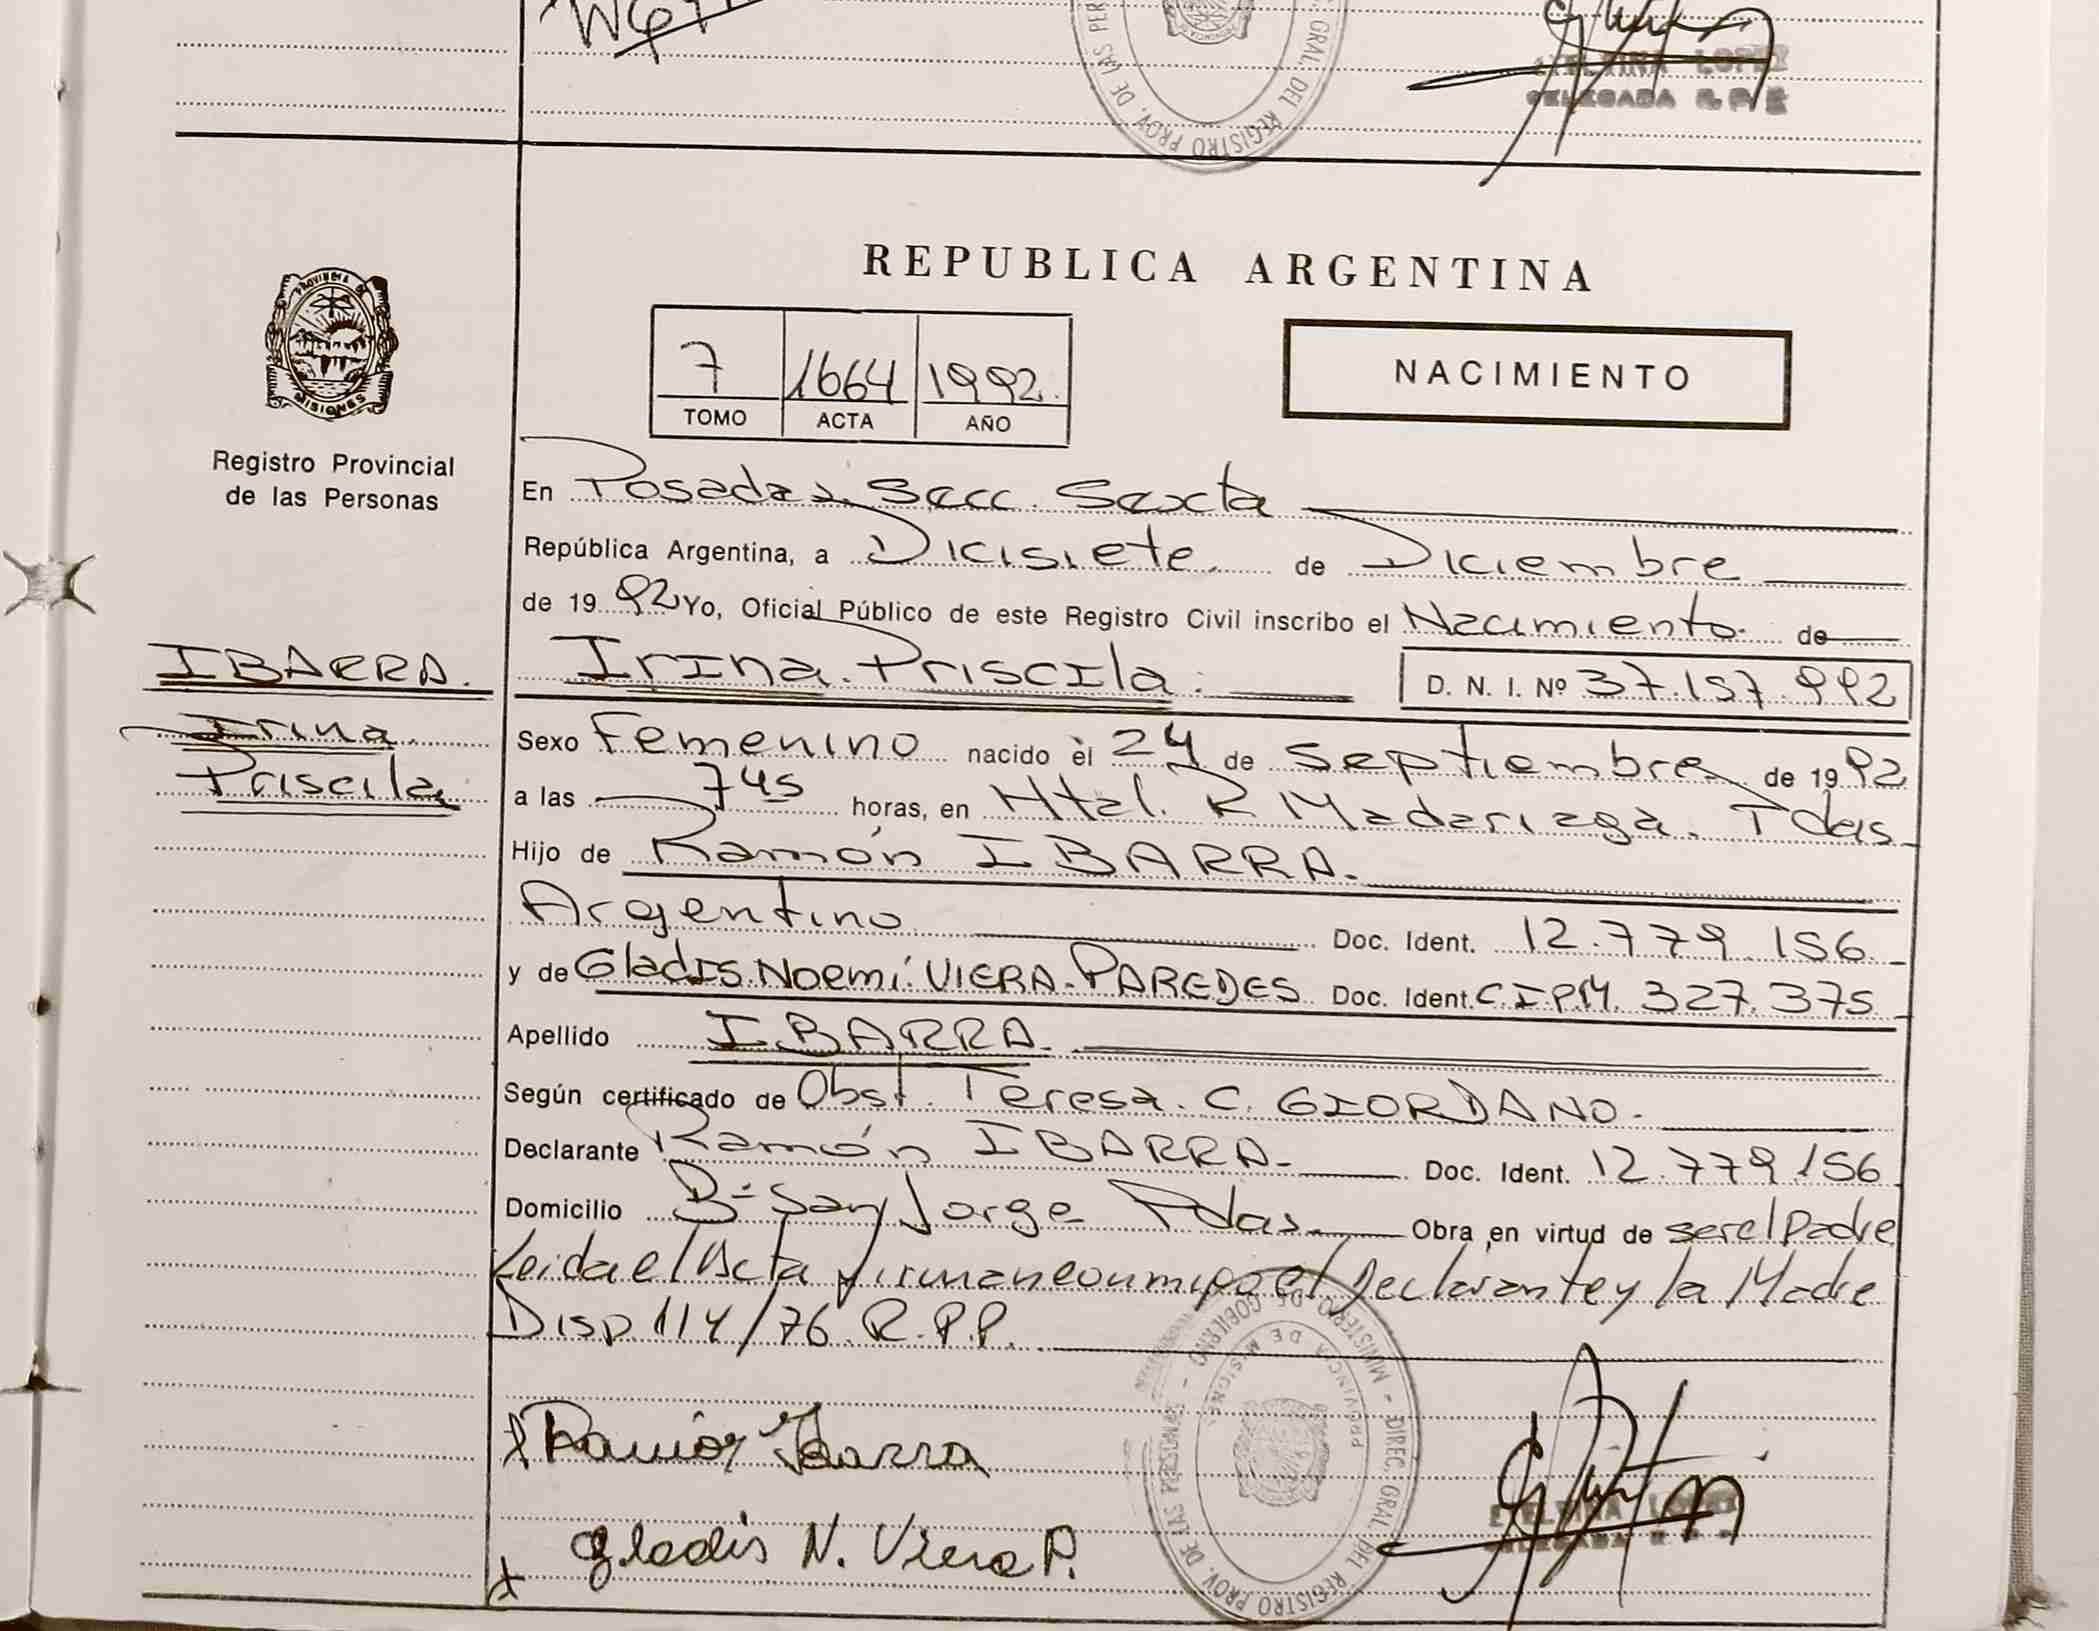 PROV. DE LAS PER
GRAL. DEL REGISTRO
ETELVINA LOPEZ
DELEGADA R.P.P
REPUBLICA ARGENTINA
PROVINCIA DE
MISIONES
Registro Provincial
de las Personas
7 1664 1992.
TOMO ACTA AÑO
NACIMIENTO
En Posadas Secc. Sexta
República Argentina, a Dicisiete de Diciembre
de 19 92 Yo, Oficial Público de este Registro Civil inscribo el Nacimiento de
IBARRA.
Irina Priscila. D. N. I. Nº 37.157.992
Irina
Priscila
Sexo Femenino nacido el 24 de Septiembre de 19 92
a las 745 horas, en Htal. R Madariaga. Pdas
Hijo de Ramón IBARRA.
Argentino Doc. Ident. 12.779.156
y de Gladis Noemi VIERA PAREDES Doc. Ident. C.I.P.M. 327.375
Apellido IBARRA.
Según certificado de Obst. Teresa. C. GIORDANO.
Declarante Ramón IBARRA. Doc. Ident. 12.779.156
Domicilio Bº San Jorge Pdas. Obra en virtud de ser el Padre
Leida el Acta firman conmigo el Declarante y la Madre
Disp 114/76 R.P.P.
MINISTERIO DE GOBIERNO - DIREC. GRAL. DEL REGISTRO PROV. DE LAS PERSONAS
PROVINCIA DE MISIONES
x Ramón Ibarra
ETELVINA LOPEZ
DELEGADA R.P.P
x Gladis N. Viera P.